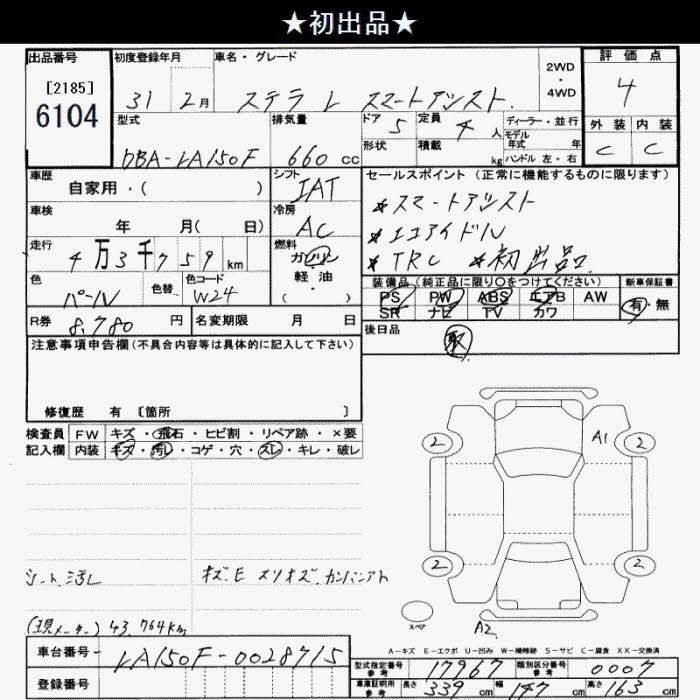 ★初出品★
出品番号 初度登録年月 車名・グレード 2WD・4WD 評価点
[2185]
6104
31 2月 ステラ L スマートアシスト 4
型式 排気量 ドア 5 定員 4 人 ディーラー・並行 外装 内装
形状 積載 kg モデル年式 年 C C
DBA-LA150F 660 cc ハンドル 左・右
車歴 シフト セールスポイント (正常に機能するものに限ります)
自家用・( ) IAT
*スマートアシスト
車検 冷房
年 月( 日) AC
*エコアイドル
走行 燃料
4万3千759 km ガソリン
*TRC *初出品
軽油
( )
色 色替 色コード 装備品(純正品に限り○をつけてください) 新車保証書
パール W24 PS PW ABS エアB AW 有・無
SR ナビ TV カワ
R券 8,780 円 名変期限 月 日 後日品
取
注意事項申告欄(不具合内容等は具体的に記入して下さい)
修復歴 有 [箇所 ]
検査員 FW キズ・飛石・ヒビ割・リペア跡・×要
記入欄 内装 キズ・汚レ・コゲ・穴・スレ・キレ・破レ
2 A1 2
2 2
シート汚レ
スペア A2
(現メーター) 43,764km
A-キズ E-エクボ U-凹み W-補修跡 S-サビ C-腐食 XX-交換済
車台番号 LA150F-0028715
型式指定番号参考 17967 類別区分番号参考 0007
登録番号
車庫証明用参考 長さ 339 cm 幅 147 cm 高さ 163 cm